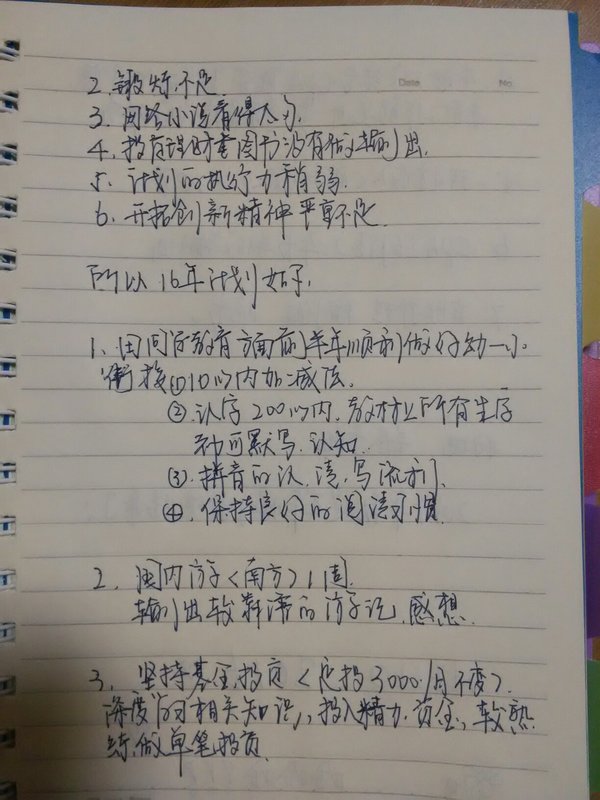 Date No.
2. 锻炼不足.
3. 网络小说看得太多.
4. 投资理财重图书没有做输出.
5. 计划的执行力稍弱.
6. 开拓创新精神严重不足.
所以16年计划如下:
1. 田同学教育方面前半年顺利做好幼-小
衔接①10以内加减法.
②认字200以内. 教材上所有生字
均可默写、认知.
③拼音的认、读、写流利.
④. 保持良好的阅读习惯.
2. 国内游学<南方>1周.
输出较 的游学记、感想.
3. 坚持基金投资<定投3000/月不变>.
深度 相关知识, 投入精力、资金, 较熟
练做单笔投资.